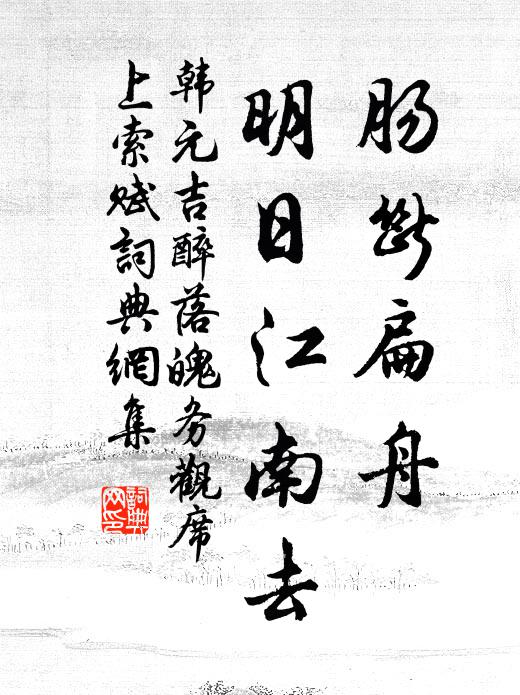 肠断扁舟
明日江南去
韩元吉醉落魄务觀席
上索赋詞典網集
詞典
网印